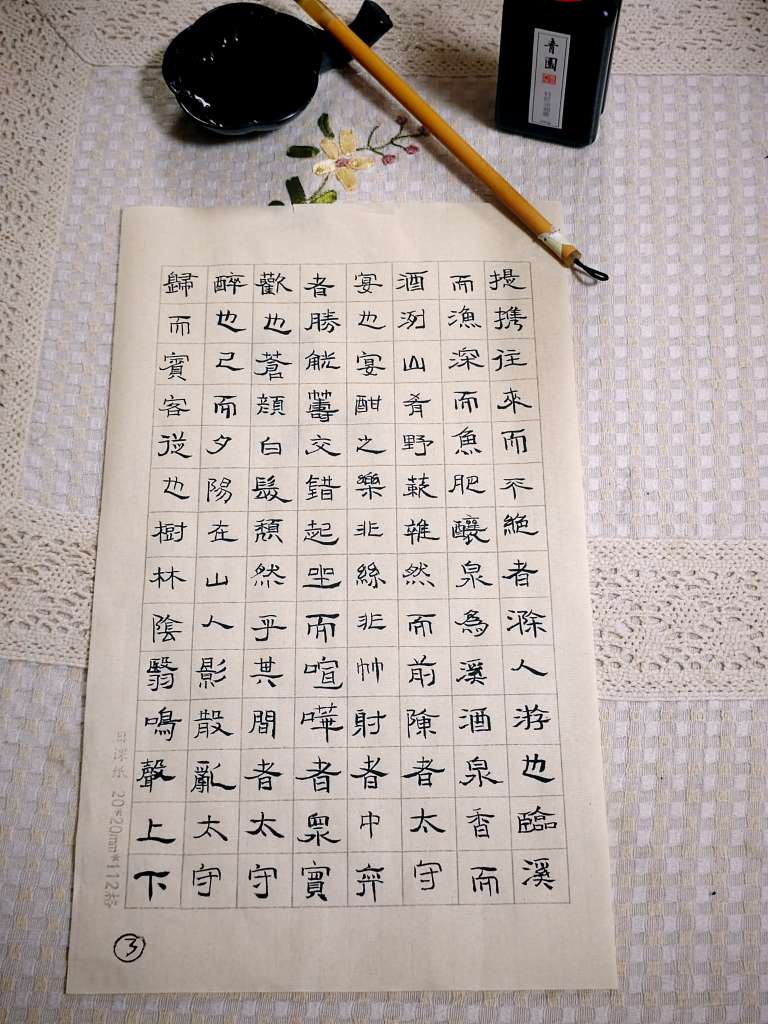 提携往來而不絶者滁人游也臨溪
而漁深而魚肥釀泉為溪酒泉香而
酒洌山肴野蔌雜然而前陳者太守
宴也宴酣之樂非絲非竹射者中弈
者勝觥籌交錯起坐而喧嘩者眾賓
歡也蒼顏白髮頹然乎其間者太守
醉也已而夕陽在山人影散亂太守
歸而賓客從也樹林陰翳鳴聲上下
20*20mm*112格
3